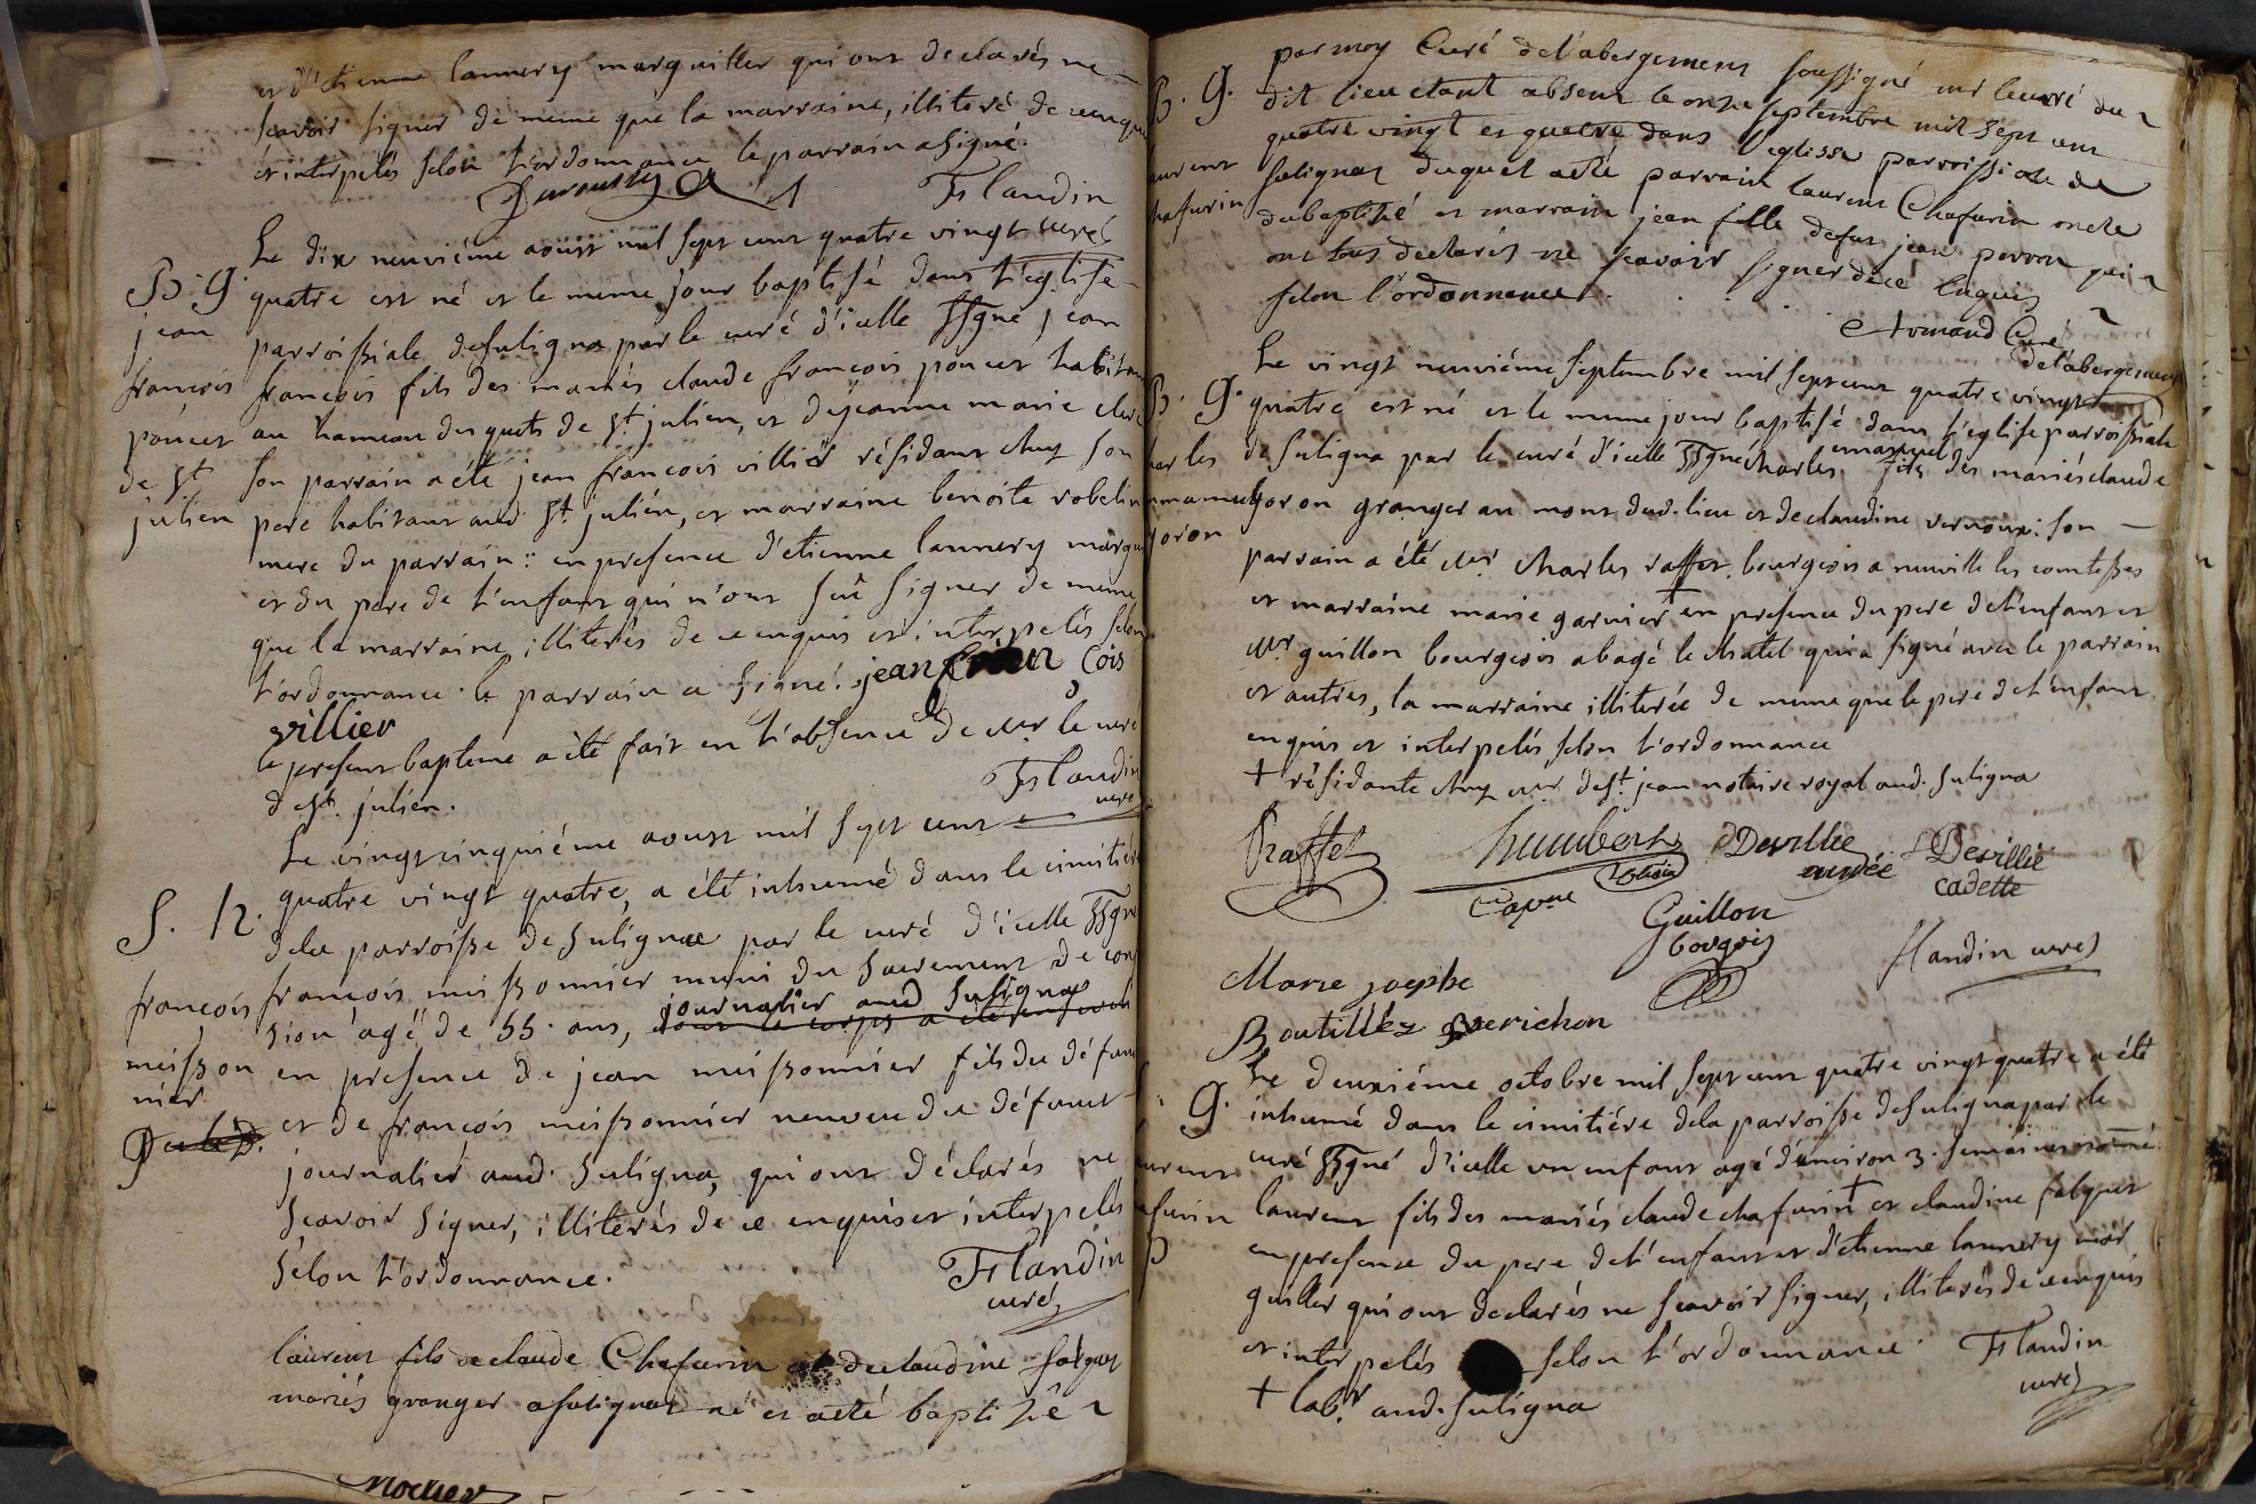 et d'etienne lannery marguiller qui ont declarés ne
scavoir signer de meme que la marraine, illiteré de ce enquis
et interpelés selon l'ordonnance le parrain a signé.
Flandin
Le dix neuvième aoust mil sept cent quatre vingt
B. G. quatre est né et le meme jour baptisé dans l'eglise
jean parroissiale de suligna par le curé d'icelle ssgné jean
françois françois fils des mariés claude françois poncet habitant
poncet au hameau des guets de st julien, et de jeanne marie clerc
de st son parrain a été jean francois villier résidant chez son
julien pere habitant aud st. julien, et marraine benoite robelin
mere du parrain: en presence d'etienne lannery margui
et du pere de l'enfant qui n'ont sçu signer de meme
que la marraine illiterés de ce enquis et interpelés selon
l'ordonnance. le parrain a signé. jean cois
villier
le present bapteme a été fait en l'absence de mr le curé
de st. julien. Flandin
curé
Le vingt cinquième aoust mil sept cent
quatre vingt quatre, a été inhumé dans le cimitiére
S. h. dela parroisse de suligna par le curé d'icelle ssgné
françois francois meissonnier muni du sacrement de con
journalier aud suligna
sion agé de 55. ans, dont le corps a été
meisson en presence de jean meissonnier fils du défunt
nier et de françois meissonnier neuveu du défunt
journalier aud. suligna, qui ont déclarés ne
scavoir signer, illiterés de ce enquis et interpelés
selon l'ordonnance. Flandin
curé
laurent fils de claude Chafurin et de claudine falquet
mariés granger a suligna né et a eté baptizé
par moy Curé de l'abergement soussigné mr le curé du
B. G. dit lieu etant absent le onze septembre mil sept cent
quatre vingt et quatre dans l'eglisse parroissiale de
laurent sulignat duquel a eté parrain laurent Chafurin oncle
chafurin du baptizé et marrain jean fille de feu jean perron qui
ont tous declarés ne scavoir signer de ce enquis
selon l'ordonnance.
Armand Curé
de l'abergement
Le vingt neuvième septembre mil sept cent quatre vingt
B. G. quatre est né et le meme jour baptisé dans l'eglise parroissiale
emanuel
charles de suligna par le curé d'icelle ssgné charles fils des mariés claude
emamuel goron granger au mont dud. lieu et de claudine vernoux: son
goron parrain a été mr. charles raffet bourgeois a neuville les comtesses
et marraine marie garnier + en presence du pere de l'enfant et
mr guillon bourgeois a bagé le chatel qui a signé avec le parrain
et autres, la marraine illiterée de meme que le pere de l'enfant
enquis et interpelés selon l'ordonnance
+ résidante chez mr de st. jean notaire royal aud. suligna
Raffet humbert Deville Deville
cadette
Guillon
bourgois
Flandin curé
Marie josephe
Boutillez Perichon
Le deuxiéme octobre mil sept cent quatre vingt quatre a été
G. inhumé dans le cimitiére dela parroisse de suligna par le
laurent curé ssgné d'icelle un enfant agé d'environ 3. semaines nommé
chafurin laurent fils des mariés claude chafurin + et claudine falquet
en presence du pere de l'enfant et d'etienne lannery mar
guiller qui ont declarés ne scavoir signer, illiterés de ce enquis
et interpelés selon l'ordonnance. Flandin
curé
+ lab.r aud. suligna